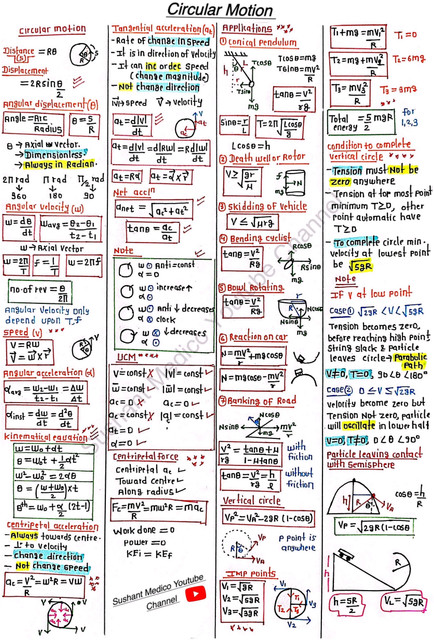 Circular Motion
circular motion
Distance = Rθ
(s)
Displacement
= 2R sin θ/2
Angular displacement (θ)
Angle = Arc/Radius
θ = S/R
θ → Axial vector.
→ Dimensionless
→ Always in Radian.
2π rad π rad π/2 rad
360 180 90
Angular velocity (ω)
ω = dθ/dt
ωavg = θ2-θ1/t2-t1
ω → Axial Vector
ω = 2π/T
f = 1/T
ω = 2πf
no. of rev = θ/2π
Angular velocity only
depend upon T, f
Speed (v)
V = Rω
Angular acceleration (α)
αinst = dω/dt = d²θ/dt
Kinematical equation
ω = ω0 + αt
θ = ω0t + 1/2 αt²
ω² - ω0² = 2αθ
θ = (ω+ω0/2) x t
θnth = ω0 + α/2 (2t-1)
centripetal acceleration
- Always towards centre.
- ⊥ to velocity
- change direction
- Not change speed
ac = V²/R = ω²R = Vω
Tangential acceleration (at)
- Rate of change in speed
- It is in direction of velocity
- It can inc or dec speed
(change magnitude)
- Not change direction
at = d|V|/dt
at = d|V|/dt = d|Rω|/dt = Rd|ω|/dt
at = Rα
Net accln
anet = √ac² + at²
tanθ = ac/at
Note
ω Anti = const
α = 0
ω increase
α
Anti ↓ decreases
clock
ω ↓ decreases
α
UCM
Centripetal force
Centripetal ac
Toward centre
Along radius
Fc = mv²/R = mω²R = mac
Work done = 0
power = 0
KEi = KEf
Sushant Medico Youtube
Channel
Applications
① Conical pendulum
Tcosθ = mg
Tsinθ = mv²/R
tanθ = V²/Rg
sinθ = r/L
T = 2π √Lcosθ/g
Lcosθ = h
② Death well or Rotor
V ≥ √gr/μ
③ skidding of Vehicle
V ≤ √μrg
④ Bending cyclist
tanθ = V²/Rg
⑤ Bowl Rotating
tanθ = V²/Rg
⑥ Reaction on car
N = mv²/r + mg cosθ
N = mg cosθ - mv²/r
⑦ Banking of Road
V²/rg = tanθ+μ/1-μtanθ
with
friction
tanθ = V²/rg = h/l
without
friction
Vertical circle
VP² = VA² - 2gR (1-cosθ)
P point is
anywhere
IMP points
V1 = √gR
V2 = √3gR
V3 = √5gR
T1 + mg = mv1²/R
T1 = 0
T3 = 6mg
T2 = 3mg
Total energy = 5/2 mgR
for
1,2,3
condition to complete
Vertical circle
- Tension must Not be
zero anywhere
- Tension at top most
minimum T≥0, other
point automatic have
T≥0
- To complete circle min.
velocity at lowest point
be √5gR
Note
If V at low point
Case① √2gR < V < √5gR
Tension becomes zero,
before reaching high point
String slack & particle
leaves circle → Parabolic
Path
V≠0, T=0, 90<θ<180°
Case② 0 ≤ V ≤ √2gR
velocity become zero but
Tension Not zero, particle
will oscillate in lower half
V=0, T≠0, 0<θ<90°
Particle leaving contact
with Hemisphere
cosθ = h/R
VP = √2gR(1-cosθ)
h = 5R/2
VL = √5gR